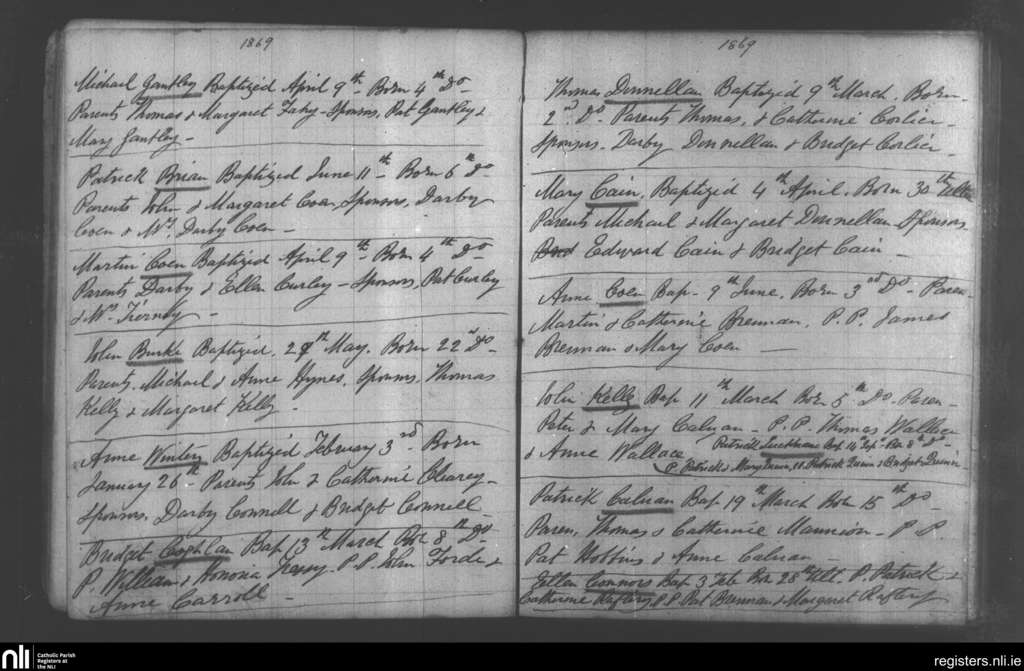 1869
Michael Gantley Baptized April 9th Born 4th Do
Parents Thomas & Margaret Fahy - Sponsors, Pat Gantley &
Mary Gantley -
Patrick Brian Baptized June 11th Born 6th Do
Parents John & Margaret Coen, Sponsors, Darby
Coen & Mrs Darby Coen -
Martin Coen Baptized April 9th Born 4th Do
Parents Darby & Ellen Curley - Sponsors, Pat Curley
& Mrs Tierney -
John Burke Baptized. May. Born 22nd Do
Parents. Michael & Anne Hynes, Sponsors, Thomas
Kelly & Margaret Kelly -
Anne Winters Baptized February 3rd Born
January 26th Parents John & Catherine Cleary -
Sponsors, Darby Connell & Bridget Connell
Bridget Coghlan Bap 13th March Bor 8th Do
P. William & Honoria P.P. John Forde &
Anne Carroll -
1869
Thomas Donnellan Baptized 9th March. Born
2nd Do Parents Thomas, & Catherine Corlier -
Sponsors. Darby Donnellan & Bridget Corlier -
Mary Cain, Baptized 4th April. Born 30th Ultm
Parents Michael & Margaret Donnellan Sponsors
Edward Cain & Bridget Cain -
Anne Coen Bap. 9th June, Born 3rd Do - Paren -
Martin & Catherine Brennan, P.P. James
Brennan & Mary Coen -
John Kelly Bap 11th March Born 5th Do. Paren -
Peter & Mary Calnan - P.P. Thomas Wallace
& Anne Wallace
Patrick Bap 14 Bor 8th Do -
P. Patrick & Mary Quinn, P.P. Patrick Quinn & Bridget Quinn
Patrick Calnan Bap 19th March Bor 15th Do
Paren, Thomas & Catherine Mannion - P P.
Pat Hobbins & Anne Calnan -
Ellen Connors Bap 3 Feb Bor 28th Ult. P. Patrick &
Catherine Raftery, P.P. Pat Brennan & Margaret Raftery
nli
Catholic Parish
Registers at
the NLI
registers.nli.ie